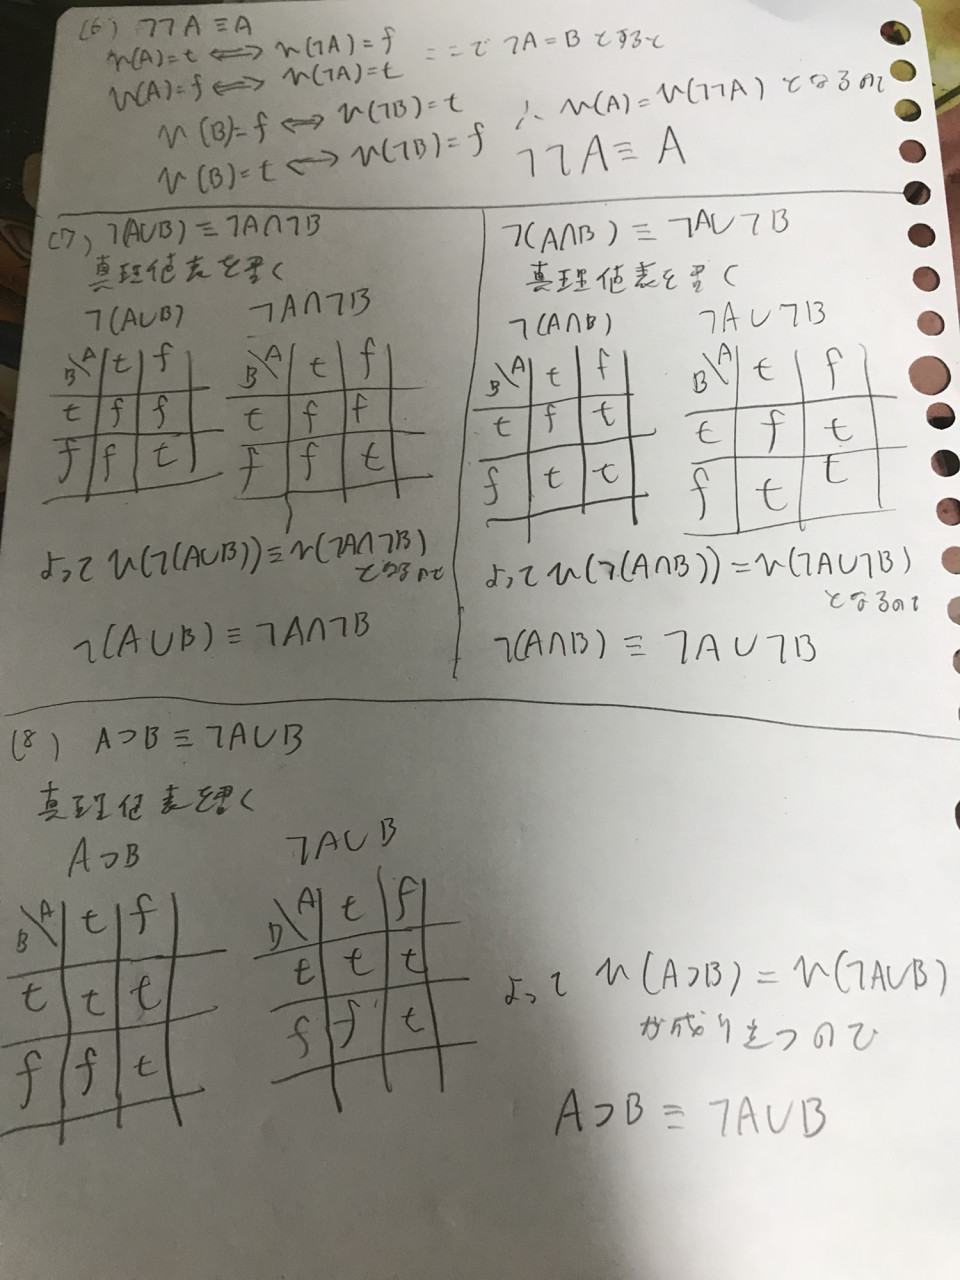 (6) ¬¬A ≡ A
v(A)=t ⟺ v(¬A)=f ここで ¬A=B とすると
v(A)=f ⟺ v(¬A)=t
v(B)=f ⟺ v(¬B)=t ∴ v(A)=v(¬¬A) となるので
v(B)=t ⟺ v(¬B)=f ¬¬A ≡ A
(7) ¬(A∪B) ≡ ¬A∩¬B
真理値表を書く
¬(A∪B) ¬A∩¬B
B\A t f B\A t f
t f f t f f
f f t f f t
よって v(¬(A∪B)) ≡ v(¬A∩¬B)
となるので
¬(A∪B) ≡ ¬A∩¬B
¬(A∩B) ≡ ¬A∪¬B
真理値表を書く
¬(A∩B) ¬A∪¬B
B\A t f B\A t f
t f t t f t
f t t f t t
よって v(¬(A∩B)) = v(¬A∪¬B)
となるので
¬(A∩B) ≡ ¬A∪¬B
(8) A⊃B ≡ ¬A∪B
真理値表を書く
A⊃B ¬A∪B
B\A t f B\A t f
t t t t t t
f f t f f t
よって v(A⊃B) = v(¬A∪B)
が成り立つので
A⊃B ≡ ¬A∪B